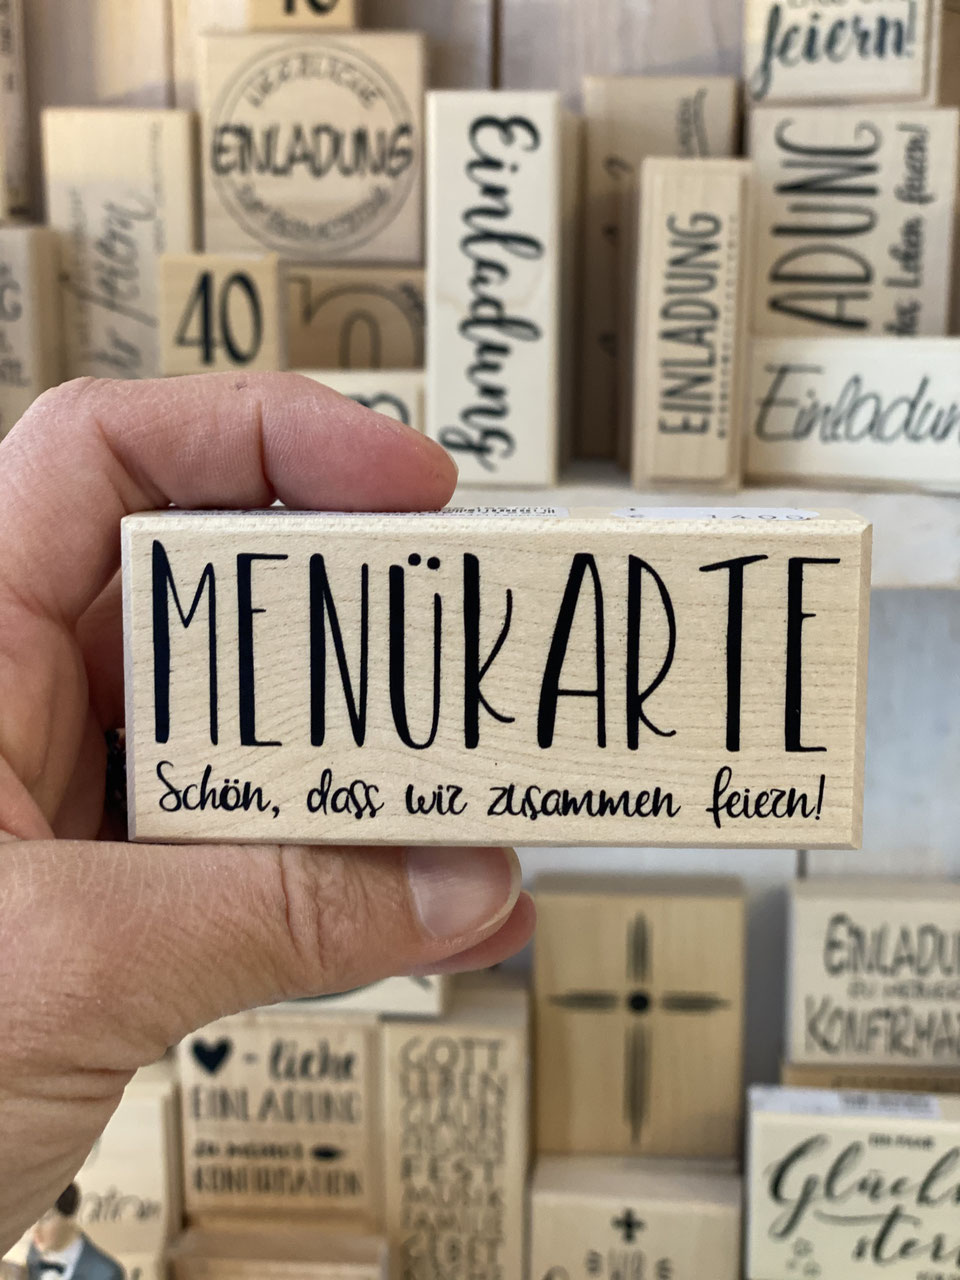 feiern!
EINLADUNG
Einladung
EINLADUNG
ADUNG
das Leben feiern!
feiern
40
Einladun
MENÜKARTE
Schön, dass wir zusammen feiern!
EINLADU
KONFIRMA
♥-liche
EINLADUNG
ZU MEINER
KONFIRMATION
GOTT
LEBEN
GLAUBE
FEST
MUSIK
FAMILIE
GEBET
EIN PAAR
Glück
ster